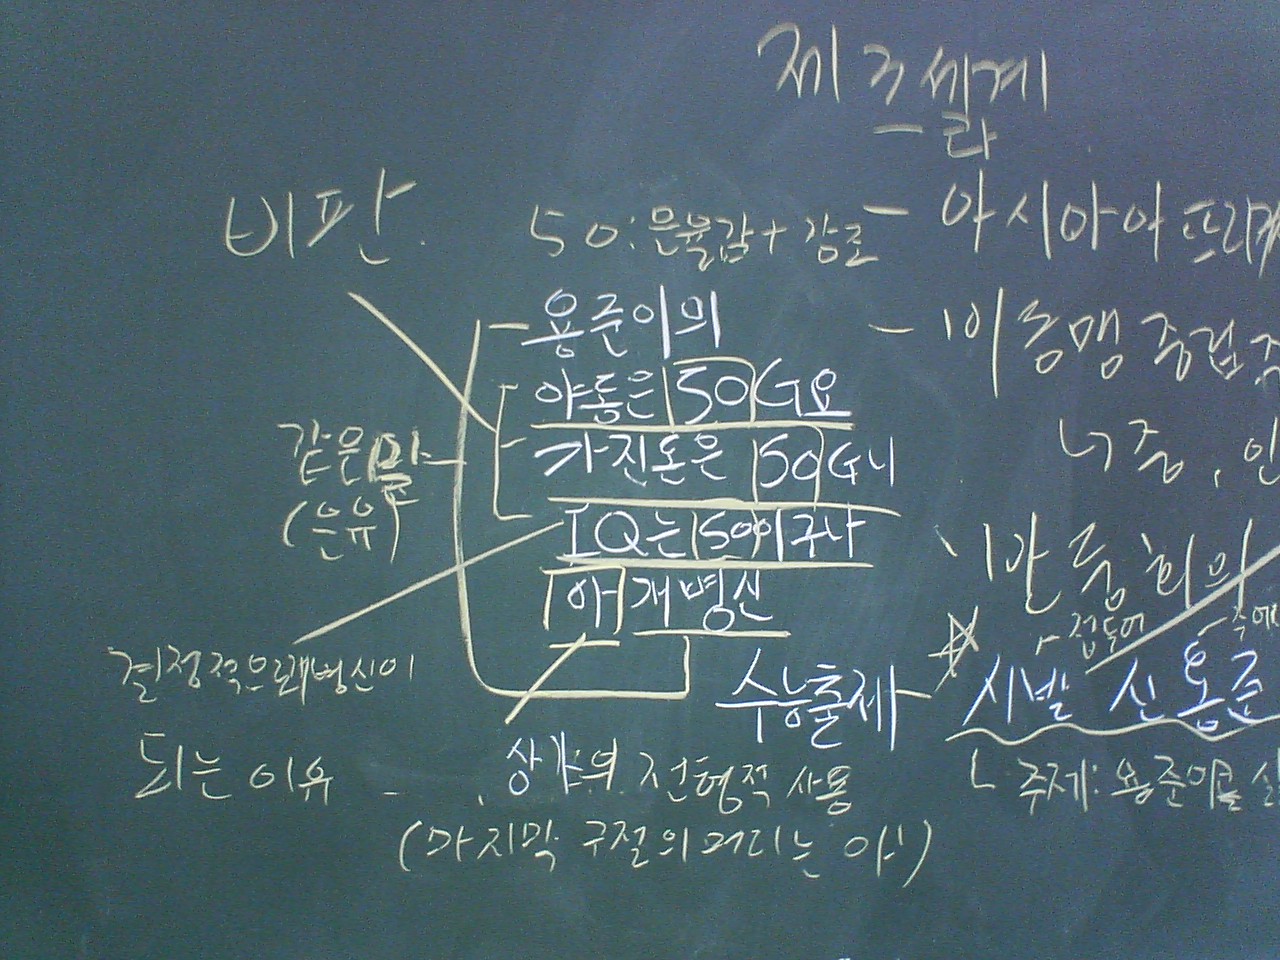 제3세계
- 라
- 아시아 아프리카
- 비동맹 중립주
너중, 인
반둥 회의
비판
50: 운율감 + 강조
용준이의
야동은 50G요
가진돈은 50G니
IQ는 50이구나
아 개병신
같은말
(은유)
결정적으로 개병신이
되는 이유
상가의 전형적 사용
(마지막 구절의 머리는 아!)
수능출제
접두어
시발 신용준
ㄴ 주제: 용준이를